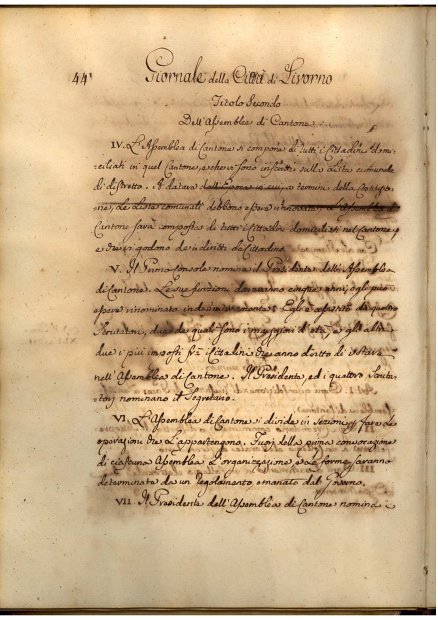 44
Giornale della Città di Livorno
Titolo Secondo
Dell'Assemblea di Cantone
IV. L'Assemblea di Cantone si compone di tutti i Cittadini domi-
ciliati in quel Cantone, e che vi sono inscritti sulla Lista comunale
di distretto. A datare dall'Epoca in cui, a termini della Costituzi-
one, le Liste comunali debbono essere rinnovate l'Assemblea di
Cantone sarà composta di tutti i Cittadini domiciliati nel Cantone,
e che vi godono dei diritti di Cittadino
V. Il Primo Console nomina il Presidente dell'Assemblea
di Cantone. Le sue funzioni durano cinque anni; egli può
essere rinominato indefinitamente; Egli è assistito da quattro
Scrutatori, due de quali sono i maggiori d'età, e gli altri
due i più imposti fra i Cittadini che anno diritto di votare
nell'Assemblea di Cantone. Il Presidente, ed i quattro Scruta-
tori nominano il Segretario.
VI. L'Assemblea di Cantone si divide in Sezioni per fare le
operazioni che Le appartengono. Fuori della prima convocazione
di ciascuna Assemblea L'organizzazione e Le forme saranno
determinate da un regolamento emanato dal Governo.
VII. Il Presidente dell'Assemblea di Cantone nomina i